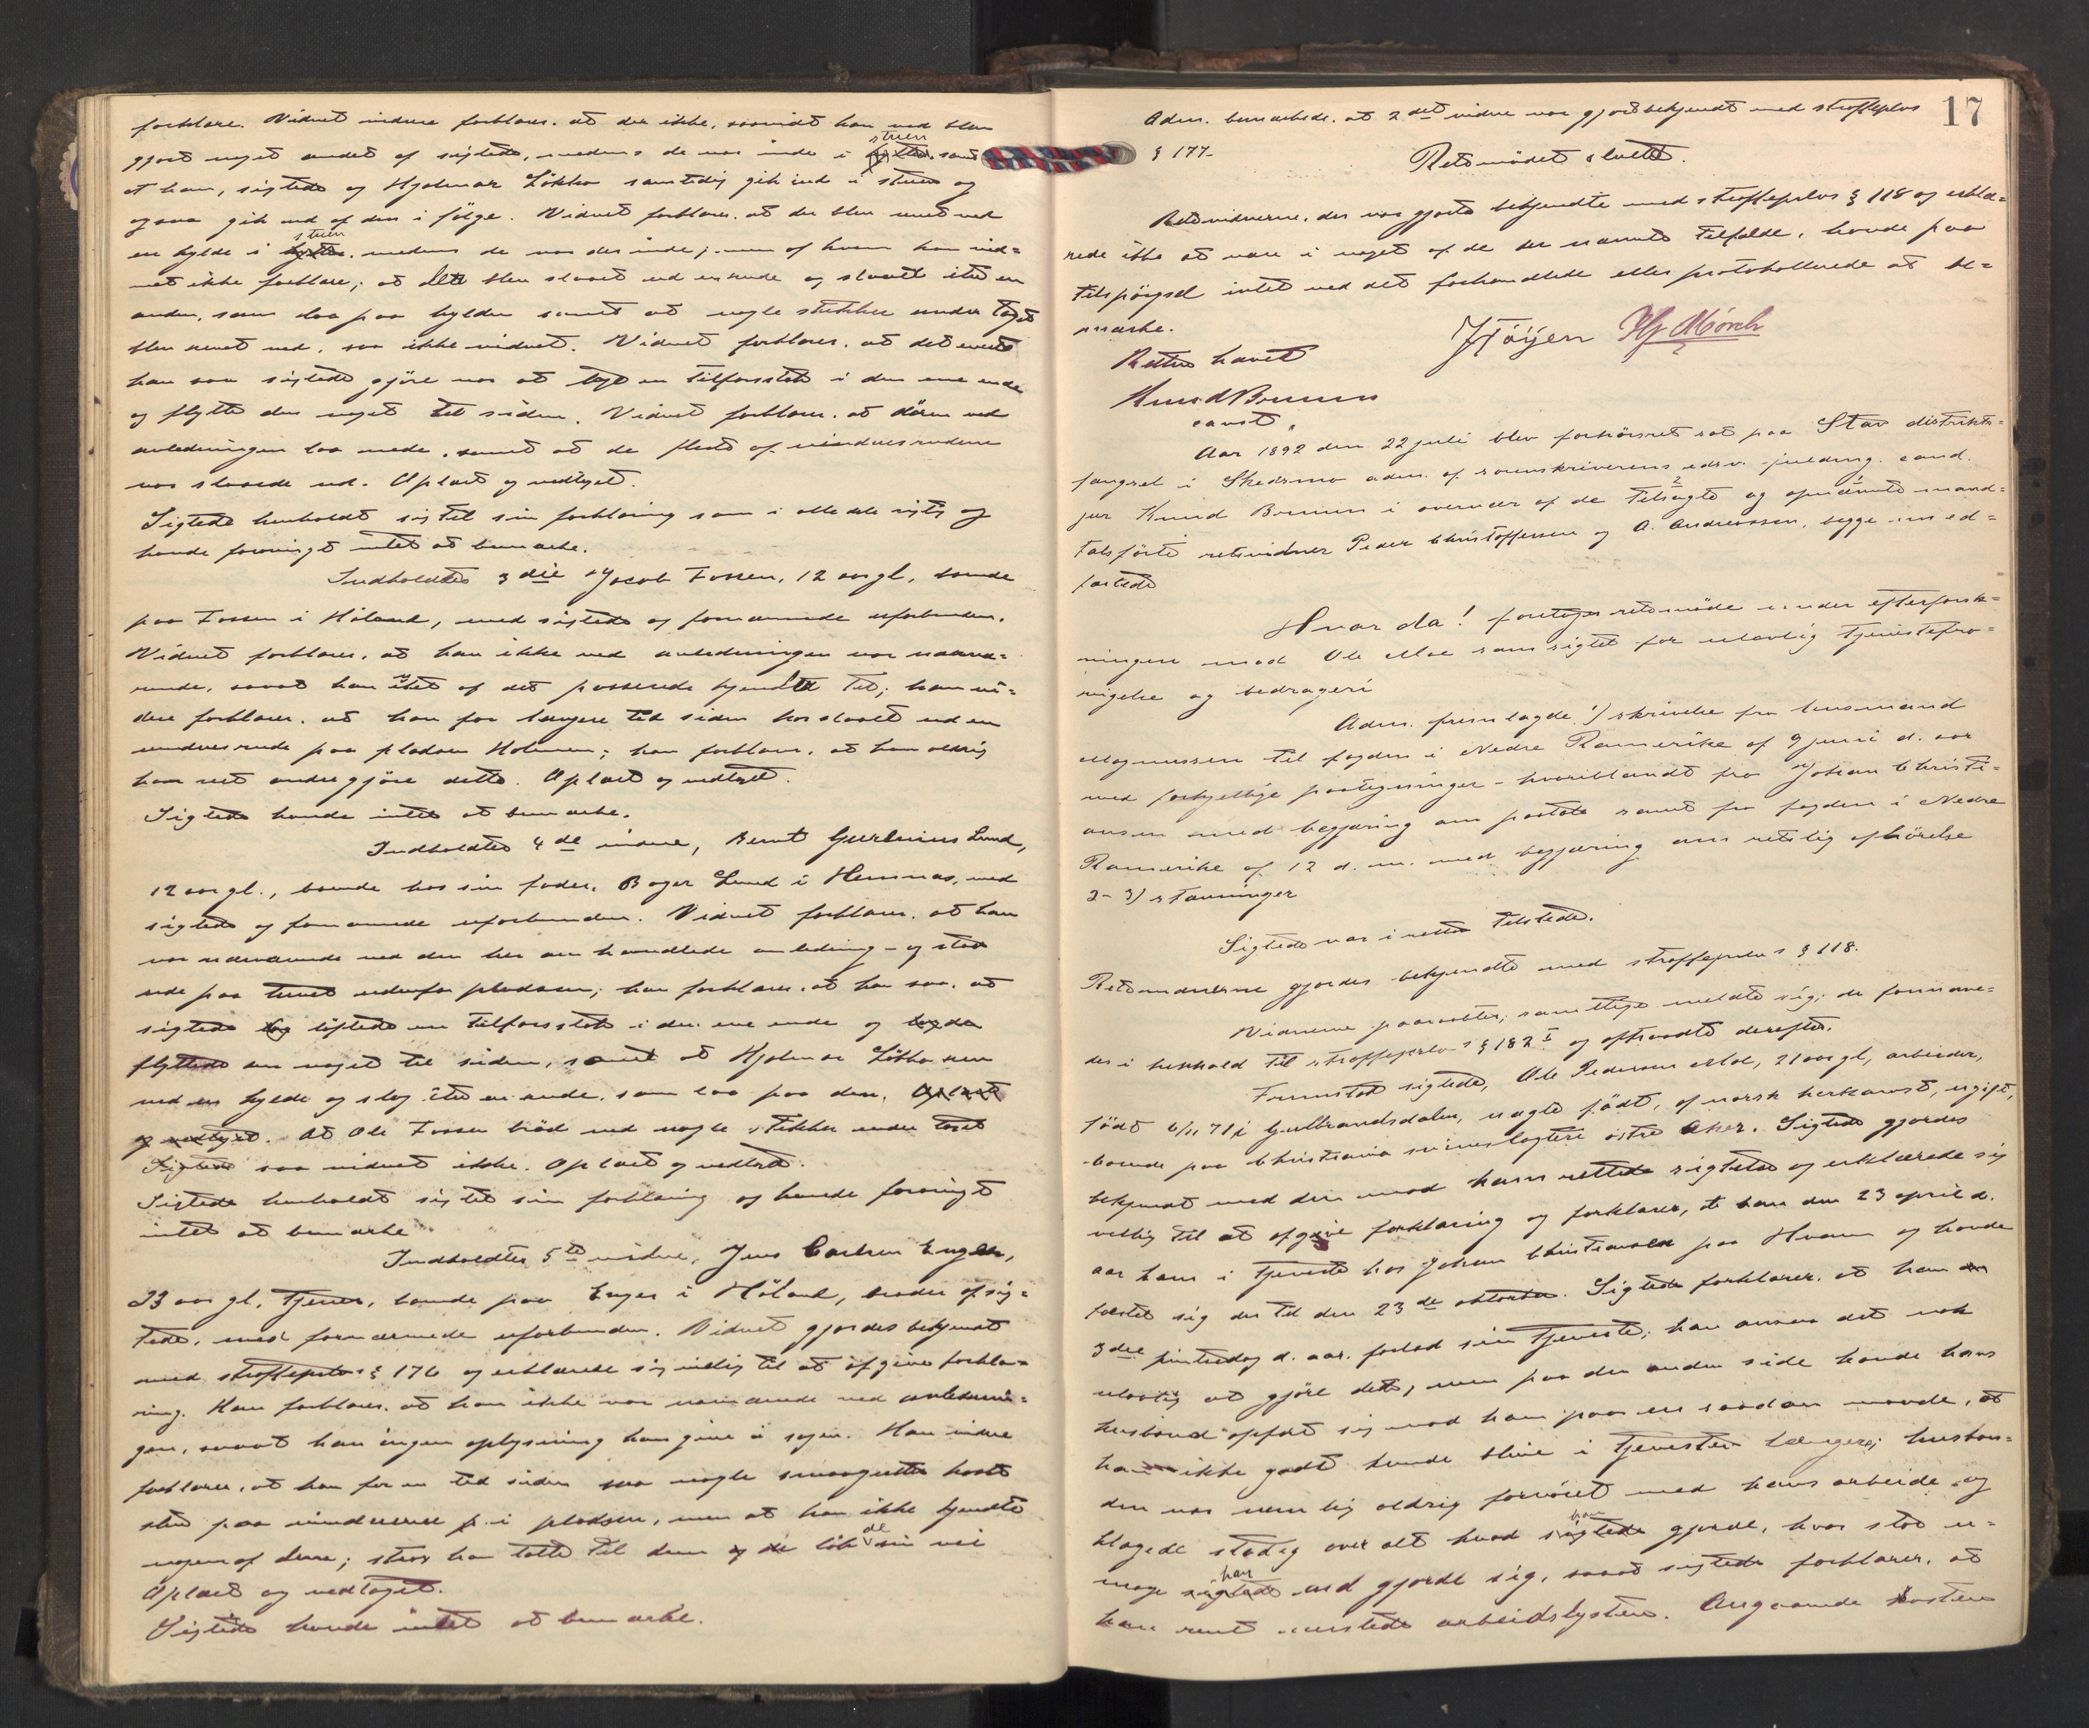 forklare. Vidnet videre forklarer. at der ikke, saavidt han ved blev
gjort noget andet af sigtede, medens de var inde i stuen samt
at han, sigtede og Hjalmar Løkka samtidig gik ind i stuen og
ogsaa gik ud af den i følge. Vidnet forklarer. at der blev revet ned
en hylde i stuen. medens de var der inde; men af hvem kan vid=
net ikke forklare; at der blev slaaet ud en rude og slaaet itu en
anden, som laa paa hylden samt at nogle stikker under taget
blev revet ned, saa ikke vidnet. Vidnet forklarer. at det eneste
han saa sigtede gjøre var at tage en tilforsstok i den ene ende
og flytte den noget til siden. Vidnet forklarer. at døren ved
anledningen laa nede, samt at de fleste af vinduesruderne
var slaaede ud. Oplæst og vedtaget.
Sigtede henholdt sig til sin forklaring som i alle dele rigtig og
havde forøvrigt intet at bemærke.
Indkaldtes 3die Jacob Fossen, 12 aar gl., boende
paa Fossen i Høland, med sigtede og fornærmede uforbunden.
Vidnet forklarer. at han ikke ved anledningen var nærvæ=
rende, saaat han intet af det passerede kjendte til; han vi=
dere forklarer. at han for længere tid siden har slaaet ud en
vinduesrude paa pladsen Holmen; han forklarer. at han aldrig
har set andre gjøre dette. Oplæst og vedtaget.
Sigtede havde intet at bemærke.
Indkaldtes 4de vidne, Bernt Gulbrines Lund,
12 aar gl., boende hos sin fader, Lund i Hemnæs, med
sigtede og fornærmede uforbunden. Vidnet forklarer. at han
var nærværende ved den her omhandlede anledning - og stod
ude paa tunet udenfor pladsen; han forklarer. at han saa. at
sigtede løftede en tilforsstok i den ene ende og
flyttede den noget til siden, samt at Hjalmar Løkka rev
ned en hylde og slog itu en rude, som laa paa den. Oplæst
og vedtaget. At Ole Fossen brød ned nogle stikker under taget
Sigtede saa vidnet ikke. Oplæst og vedtaget.
Sigtede henholdt sig til sin forklaring og havde forøvrigt
intet at bemærke.
Indkaldtes 5te vidne, Jens Carlsen Enger,
23 aar gl, tjener, boende paa Enger i Høland, broder af sig=
tede, med fornærmede uforbunden. Vidnet gjordes bekjendt
med straffeprlov § 176 og erklærede sig villig til at afgive forkla=
ring. Han forklarer. at han ikke var nærværende ved anlednin=
gen, saaat han ingen oplysning kan give i sagen. Han videre
forklarer, at han for en tid siden saa nogle smaagutter kaste
sten paa vinduerne i pladsen, men at han ikke kjendte
nogen af disse; strax han talte til dem løb de sin vei
Oplæst og vedtaget.
Sigtede havde intet at bemærke.
17
Adm. bemærkede. at 2det vidne var gjort bekjendt med straffeprlov
§ 177.
Retsmødet sluttet.
Retsvidnerne, der var gjorte bekjendte med straffeprlov § 118 og erklæ=
rede ikke at være i noget af de der nævnte tilfælde, havde paa
tilspørgsel intet ved det forhandlede eller protokollerede at be=
mærke.
Retten hævet
Knud Bruun
const.
Høyen Hf Mørch
Aar 1892 den 22 juli blev forhørsret sat paa Stav distrikts=
fængsel i Skedsmo adm. af sorenskriverens edsv. fuldmg. cand.
jur Knud Bruun i overvær af de tilsagte og opnævnte mand=
talsførte retsvidner Peder Christoffersen og A. Andreassen, begge im ed=
fæstede
Hvor da! foretoges retsmøde under efterforsk=
ningen mod Ole Moe som sigtet for ulovlig tjenestefra=
vigelse og bedrageri
Adm. fremlagde 1) skrivelse fra lensmand
Magnussen til fogden i Nedre Romerike af 9 juni d. aar
med forskjellige paategninger - hvoriblandt fra Johan Christi=
ansen med begjæring om paatale samt fra fogden i Nedre
Romerike af 12 d. m. med begjæring om retslig afhørelse
2-3) stævninger
Sigtede var i retten tilstede.
Retsvidnerne gjordes bekjendte med straffeprlov § 118.
Vidnerne paaraabtes, samtlige meldte sig; de formane=
des i henhold til straffeprlov's § 182 I og aftraadte derefter.
Fremstod sigtede, Ole Pedersen Moe, 21 aar gl, arbeider,
født 6/11 71 i Gulbrandsdalen, uægte født, af norsk herkomst, ugift,
boende paa Christiania svineslagteri østre Aker. Sigtede gjordes
bekjendt med den mod ham rettede sigtelse og erklærede sig
villig til at afgive forklaring og forklarer, at han den 23 april d.
aar kom i tjeneste hos Johan Christiansen paa Hvam og havde
fæstet sig der til den 23de oktober. Sigtede forklarer. at han
3die pintsedag d. aar. forlod sin tjeneste; han ansaa det nok
ulovlig at gjøre dette, men paa den anden side havde hans
husbond opført sig mod ham paa en saadan maade, at
han ikke godt kunde blive i tjenesten længere; husbon=
den var nemlig aldrig fornøiet med hans arbeide og
klagede stadig over alt hvad han gjorde, hvor stor u=
mage han end gjorde sig, saaat sigtede forklarer, at
han rent mistede arbeidslysten. Angaaende kosten